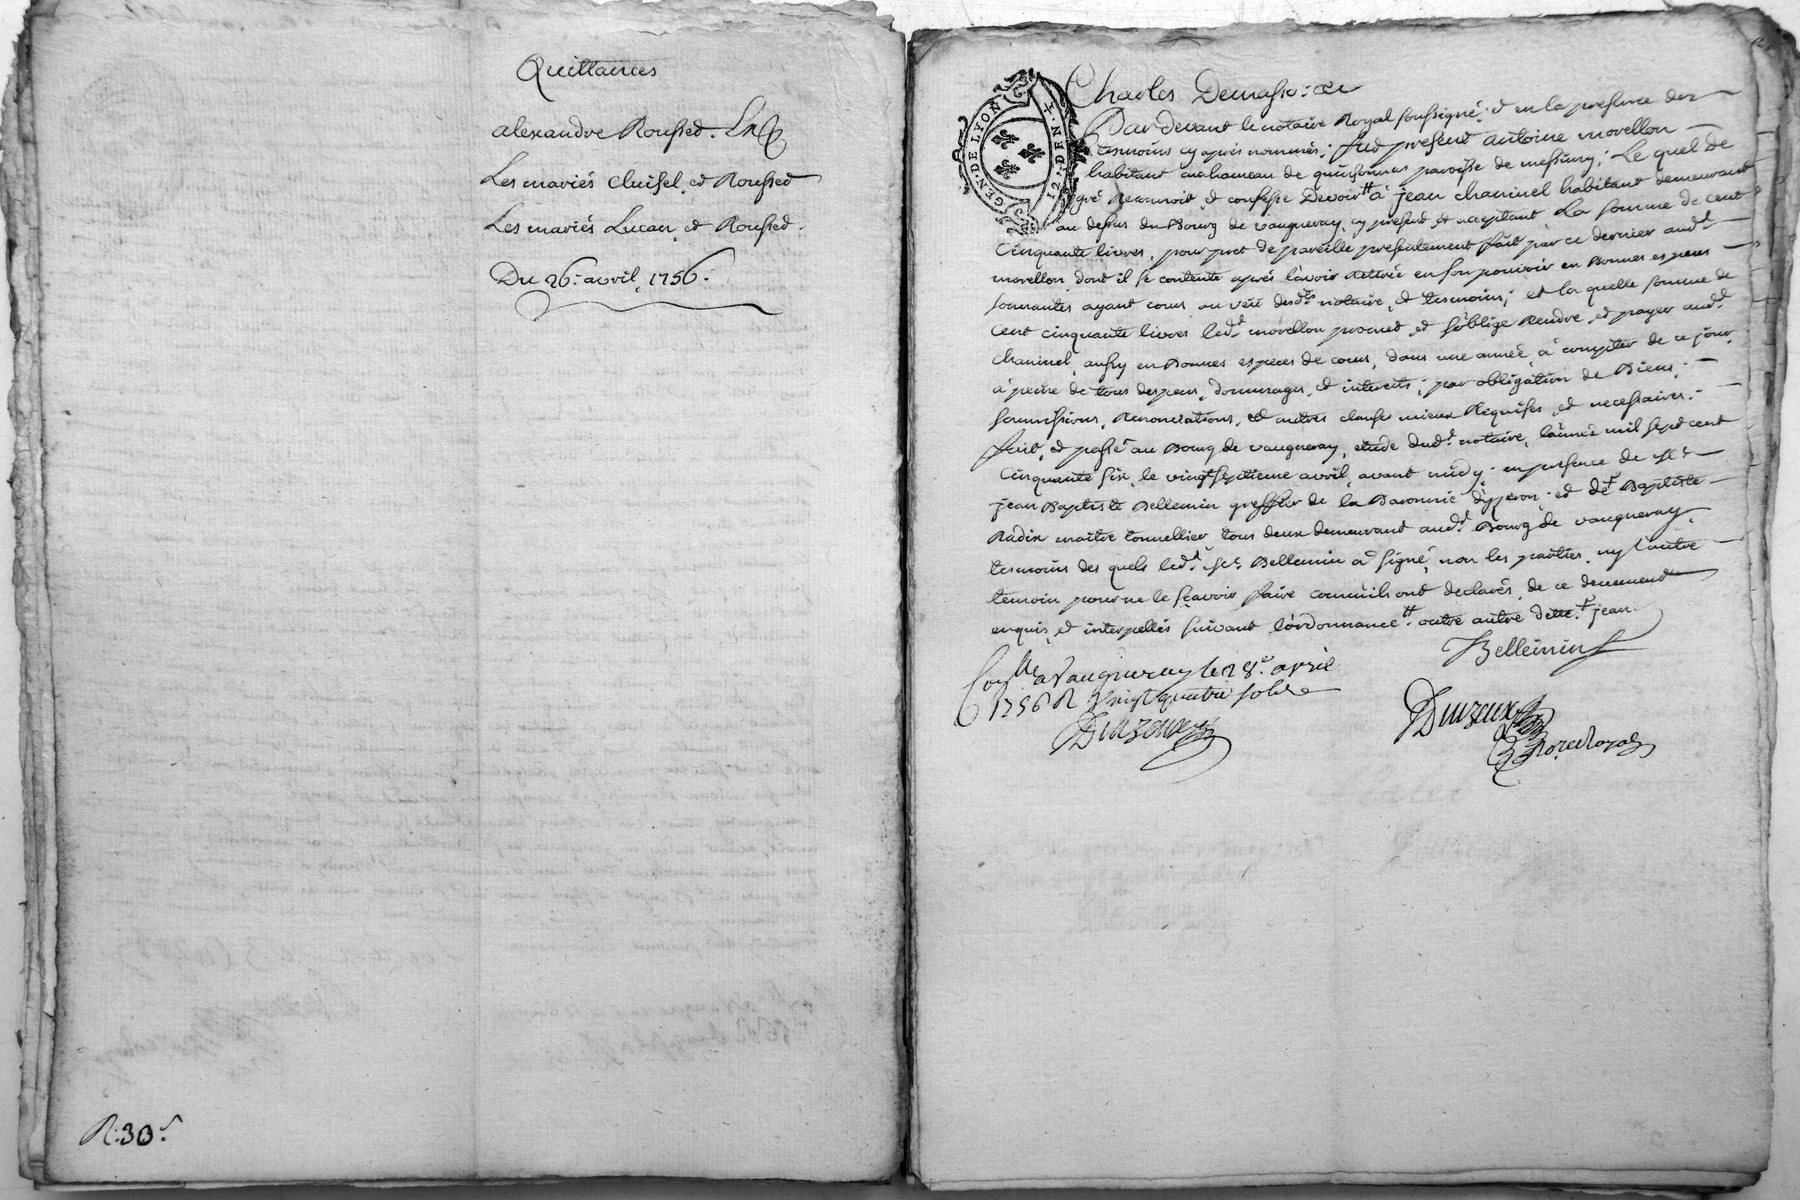 Quittances
alexandre Rousset.
Les mariés Cluisel, et Rousset
Les mariés Lucan, et Rousset.
Du 26. avril, 1756.
R. 30.s
GEN. DE LYON
12. DEN
Charles
Pardevant le notaire Royal soussigné, et en la presence des
tesmoins cy après nommés; fut present antoine morellon
habitant au hameau de paroisse de messimy; Le quel de
gré reconnoit, et confesse Devoir à jean chaninel habitant demeurant
au dessus du Bourg de vaugneray, cy present et acceptant La somme de cent
cinquante livres, pour pret de pareille presentement fait par ce dernier aud.t
morellon dont il se contente après l'avoir retirée en son pouvoir en Bonnes especes
sonnantes ayant cours au vëu desd.ts notaire, et tesmoins; et la quelle somme de
cent cinquante livres led.t morellon promet, et s'oblige Rendre, et payer aud.t
chaninel, aussy en Bonnes especes de cours, dans une année, à compter de ce jour,
à peine de tous despens, dommages, et interets; par obligation de Biens;
soumissions, Renonciations, et autres clauses mieux Requises, et necessaires.
fait, et passé au Bourg de vaugneray, etude dud.t notaire, l'année mil sept cent
cinquante six, le vingt septieme avril, avant midy; en presence de s.r
jean Baptiste Bellemin greffier de la Baronnie d'yzeron; et de Baptiste
Radix maitre tonnellier, tous deux demeurant aud.t Bourg de vaugneray,
tesmoins des quels led.t s.r Bellemin a signé, non les parties, ny l'autre
temoin pour ne le sçavoir faire comm'ils ont declarés, de ce deuement
enquis, et interpellés suivant l'ordonnance outre autre dette. jean
Bellemin
Con.lle a Vaugneray le 28.e avril
1756 R vingt quatre sols
Duzeux
Duzeux
Nore Royal